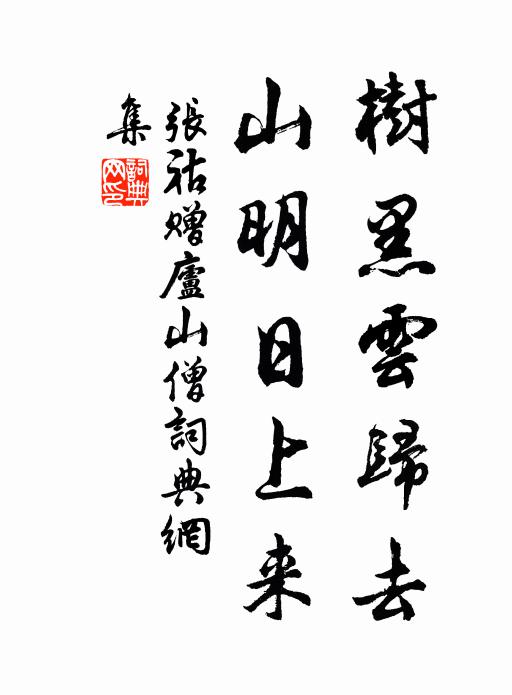 樹黑雲歸去
山明日上来
張祜贈廬山僧詞典網
集
詞典
网印